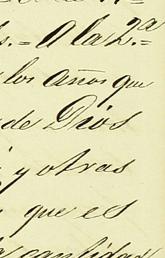 s.= A la 2.ª
los años que
de Dios
y otras
que es
cantidad